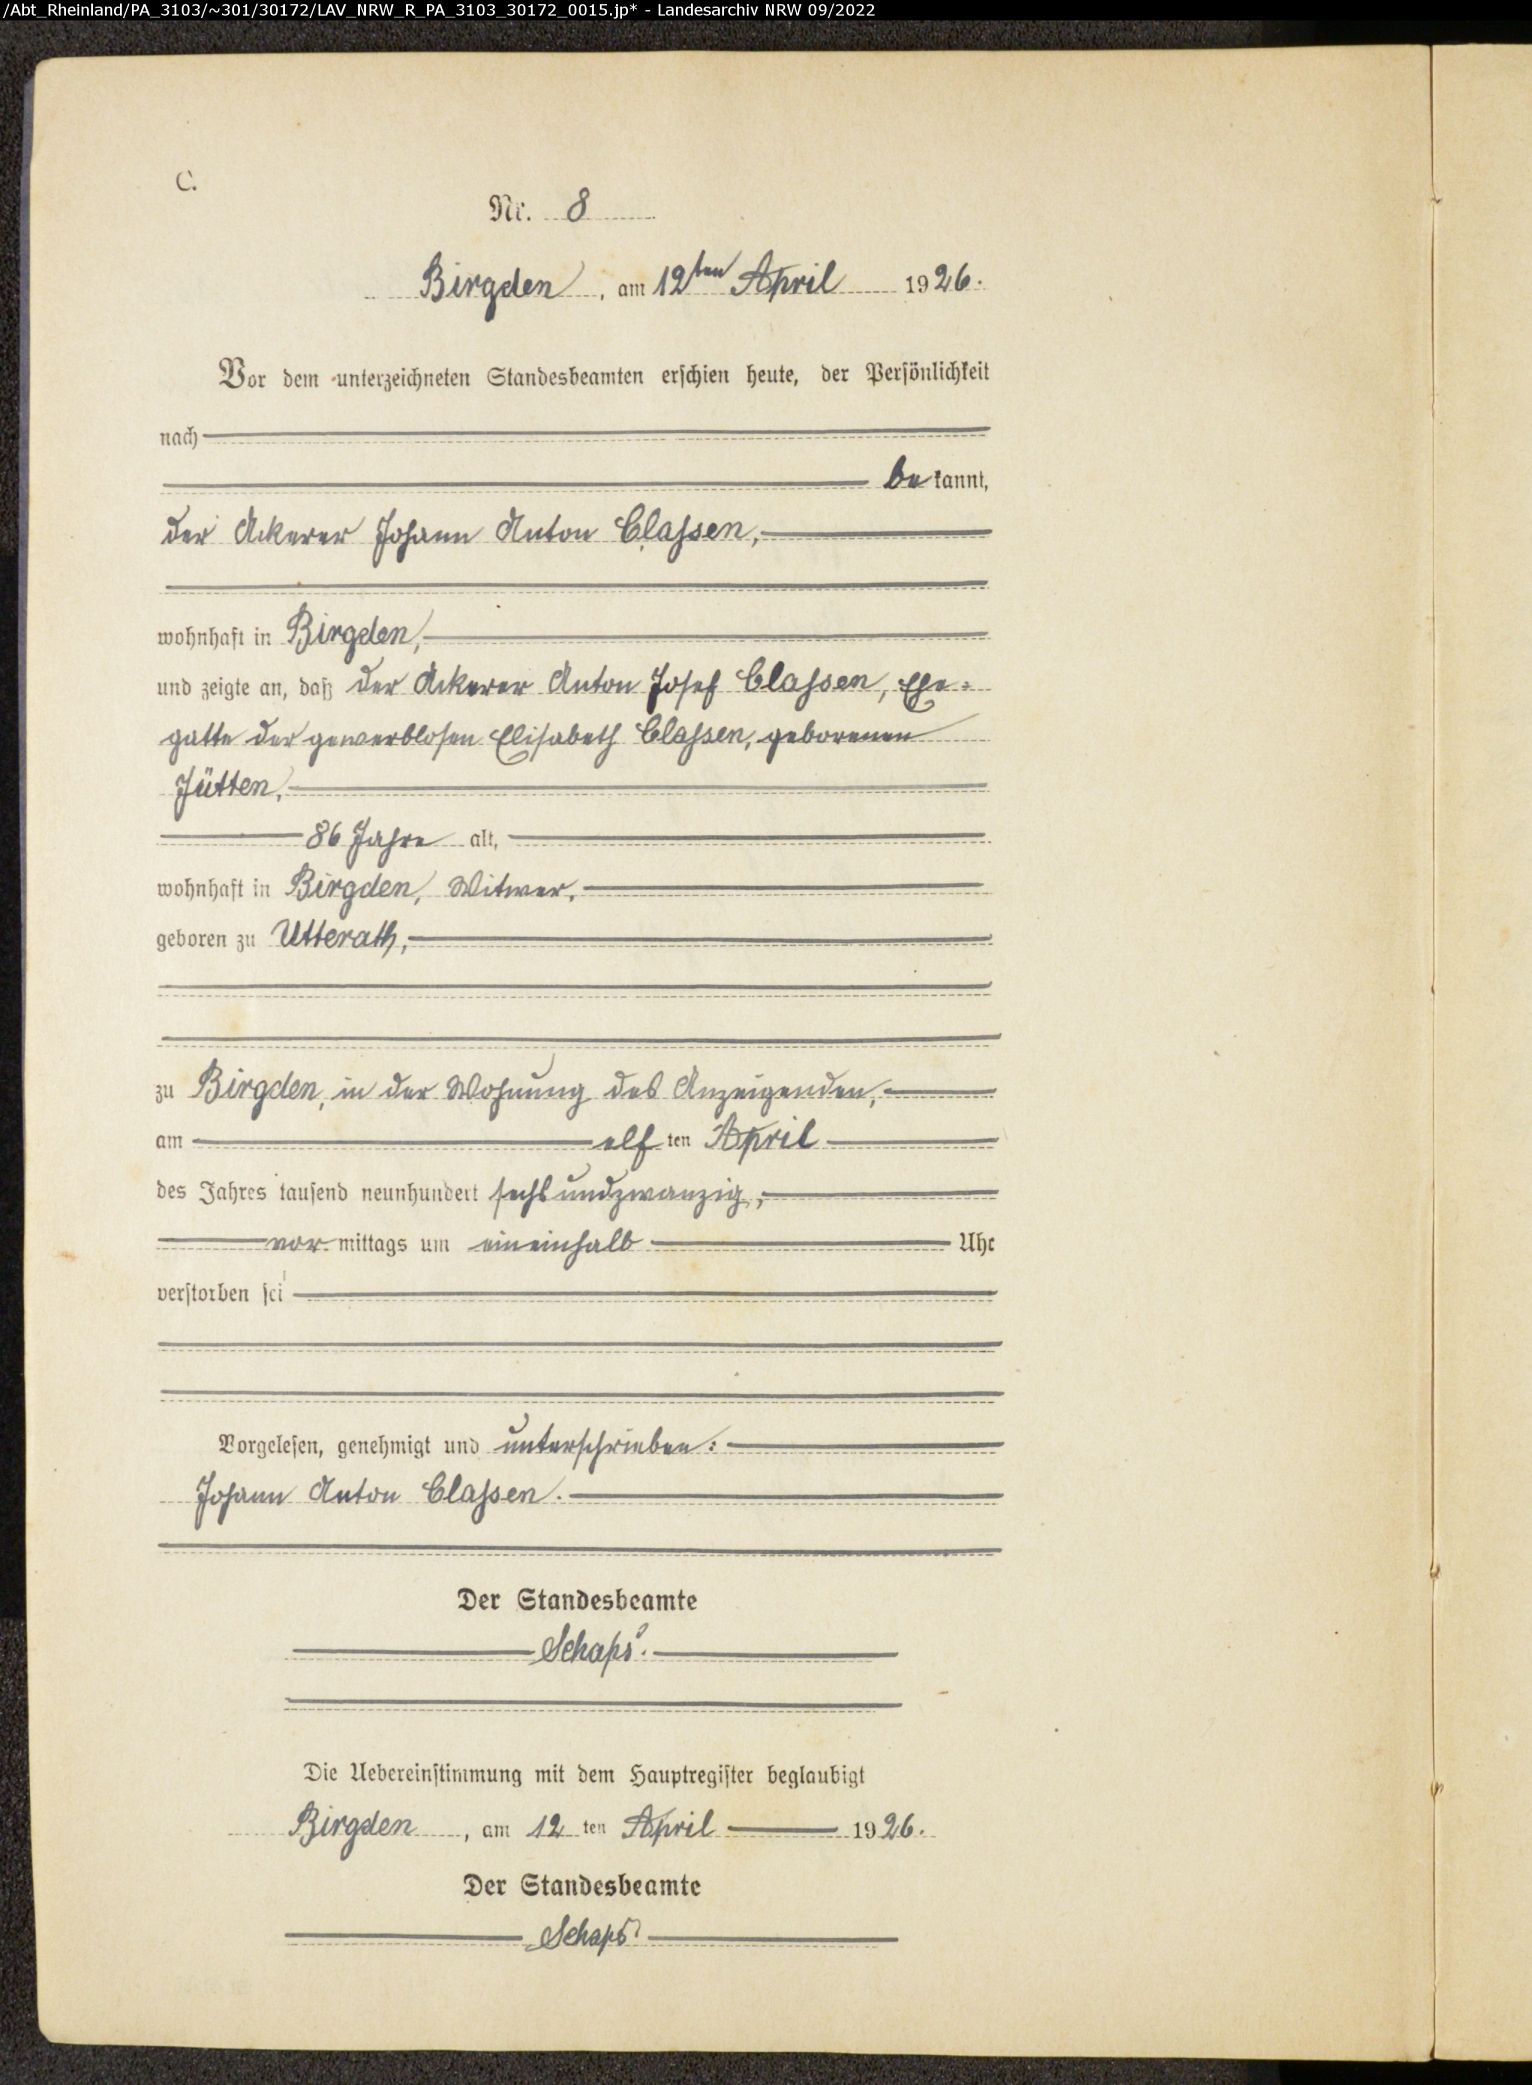 /Abt_Rheinland/PA_3103/~301/30172/LAV_NRW_R_PA_3103_30172_0015.jp* - Landesarchiv NRW 09/2022
C.
Nr. 8
Birgden, am 12ten April 1926.
Vor dem unterzeichneten Standesbeamten erschien heute, der Persönlichkeit
nach
be kannt,
der Ackerer Johann Anton Classen,
wohnhaft in Birgden,
und zeigte an, daß der Ackerer Anton Josef Classen, Ehe=
gatte der gewerblosen Elisabeth Classen, geborenen
Jütten,
86 Jahre alt,
wohnhaft in Birgden, Witwer,
geboren zu Utterath,
zu Birgden, in der Wohnung des Anzeigenden,
am elf ten April
des Jahres tausend neunhundert sechsundzwanzig,
vor mittags um eineinhalb Uhr
verstorben sei
Vorgelesen, genehmigt und unterschrieben:
Johann Anton Classen.
Der Standesbeamte
Schaps.
Die Uebereinstimmung mit dem Hauptregister beglaubigt
Birgden, am 12 ten April 1926.
Der Standesbeamte
Schaps